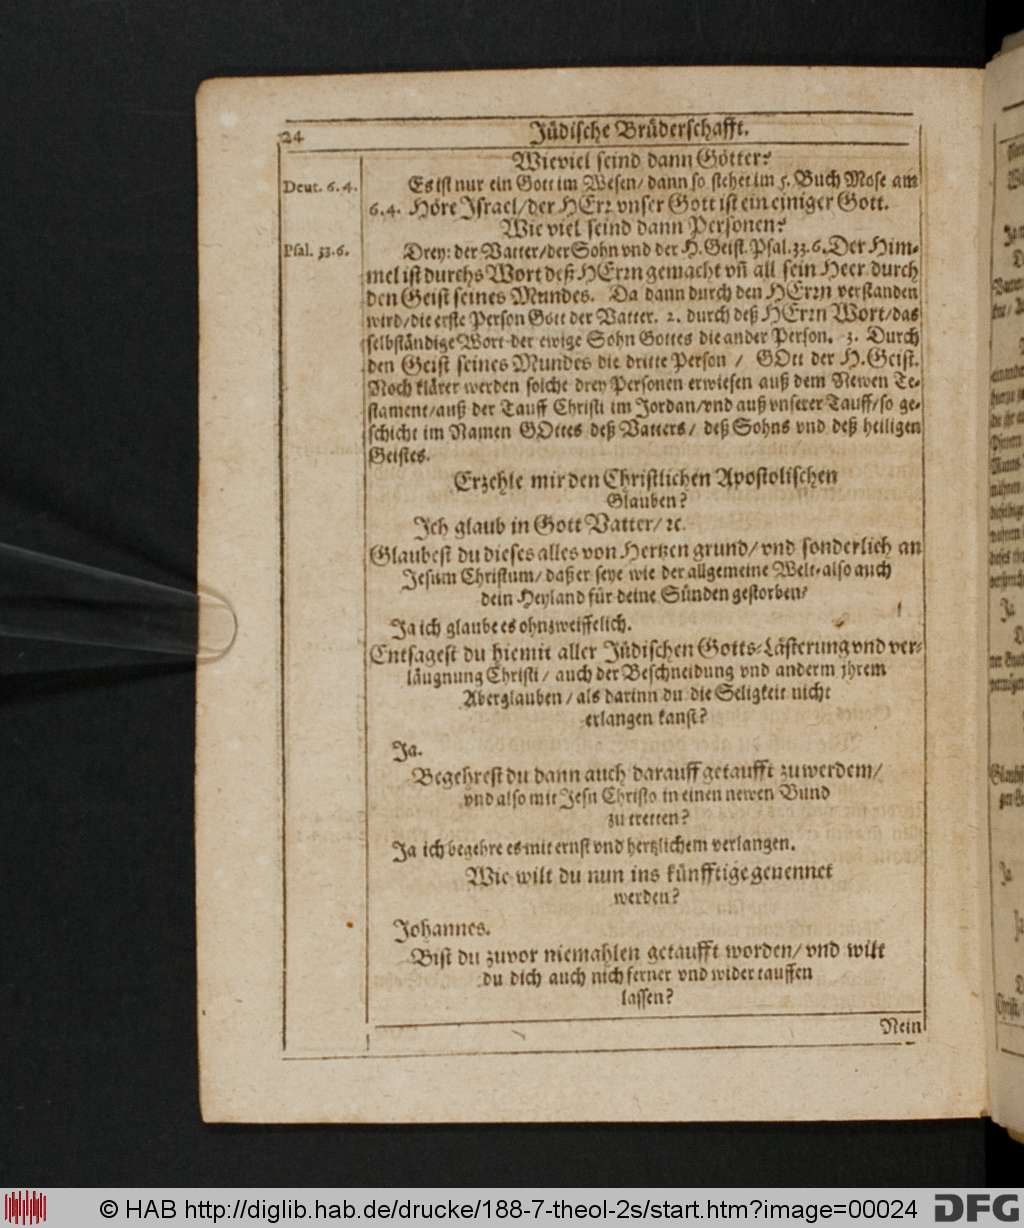 24
Jüdische Brüderschafft.
Wieviel seind dann Götter?
Deut. 6.4.
Es ist nur ein Gott im Wesen/ dann so stehet im 5. Buch Mose am
6.4. Höre Israel/ der HErr vnser Gott ist ein einiger Gott.
Wie viel seind dann Personen?
Psal. 33.6.
Drey: der Vatter/ der Sohn vnd der H. Geist. Psal. 33.6. Der Him-
mel ist durchs Wort deß HErrn gemacht vñ all sein Heer durch
den Geist seines Mundes. Da dann durch den HErrn verstanden
wird/ die erste Person Gott der Vatter. 2. durch deß HErrn Wort/ das
selbständige Wort der ewige Sohn Gottes die ander Person. 3. Durch
den Geist seines Mundes die dritte Person / GOtt der H. Geist.
Noch klärer werden solche drey Personen erwiesen auß dem Newen Te-
stament/ auß der Tauff Christi im Jordan/ vnd auß vnserer Tauff/ so ge-
schicht im Namen GOttes deß Vatters/ deß Sohns vnd deß heiligen
Geistes.
Erzehle mir den Christlichen Apostolischen
Glauben?
Ich glaub in Gott Vatter/ ꝛc.
Glaubest du dieses alles von Hertzen grund/ vnd sonderlich an
Jesum Christum/ daß er seye wie der allgemeine Welt- also auch
dein Heyland für deine Sünden gestorben?
Ja ich glaube es ohnzweiffelich.
Entsagest du hiemit aller Jüdischen Gotts-Lästerung vnd ver-
läugnung Christi/ auch der Beschneidung vnd anderm jhrem
Aberglauben/ als darinn du die Seligkeit nicht
erlangen kanst?
Ja.
Begehrest du dann auch darauff getaufft zu werdem/
vnd also mit Jesu Christo in einen newen Bund
zu tretten?
Ja ich begehre es mit ernst vnd hertzlichem verlangen.
Wie wilt du nun ins künfftige genennet
werden?
Johannes.
Bist du zuvor niemahlen getaufft worden/ vnd wilt
du dich auch nich ferner vnd wider tauffen
lassen?
Nein
© HAB http://diglib.hab.de/drucke/188-7-theol-2s/start.htm?image=00024
DFG